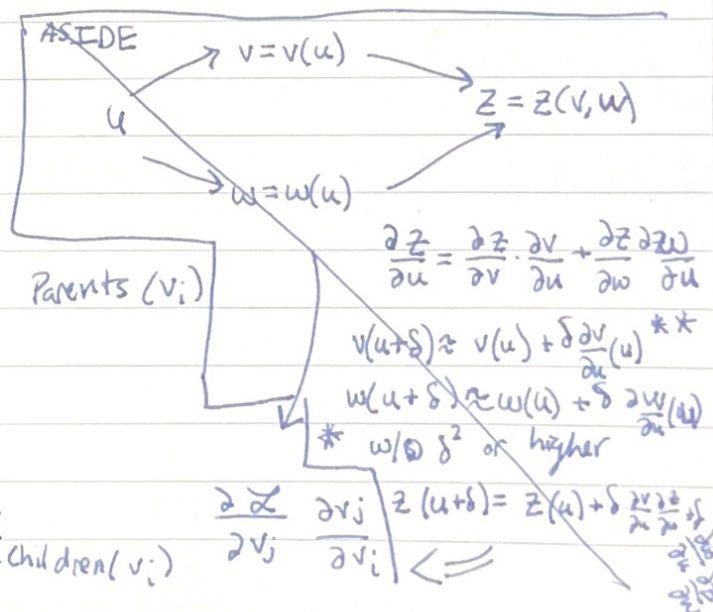 ASIDE
v = v(u)
u
z = z(v, w)
w = w(u)
∂z/∂u = ∂z/∂v · ∂v/∂u + ∂z/∂w ∂w/∂u
Parents (vi)
v(u+δ) ≈ v(u) + δ ∂v/∂u (u) **
w(u+δ) ≈ w(u) + δ ∂w/∂u (u)
* w/o δ² or higher
z(u+δ) = z(u) + δ ∂v/∂u ∂z/∂u + δ
∂L/∂vj ∂vj/∂vi
Children(vi)